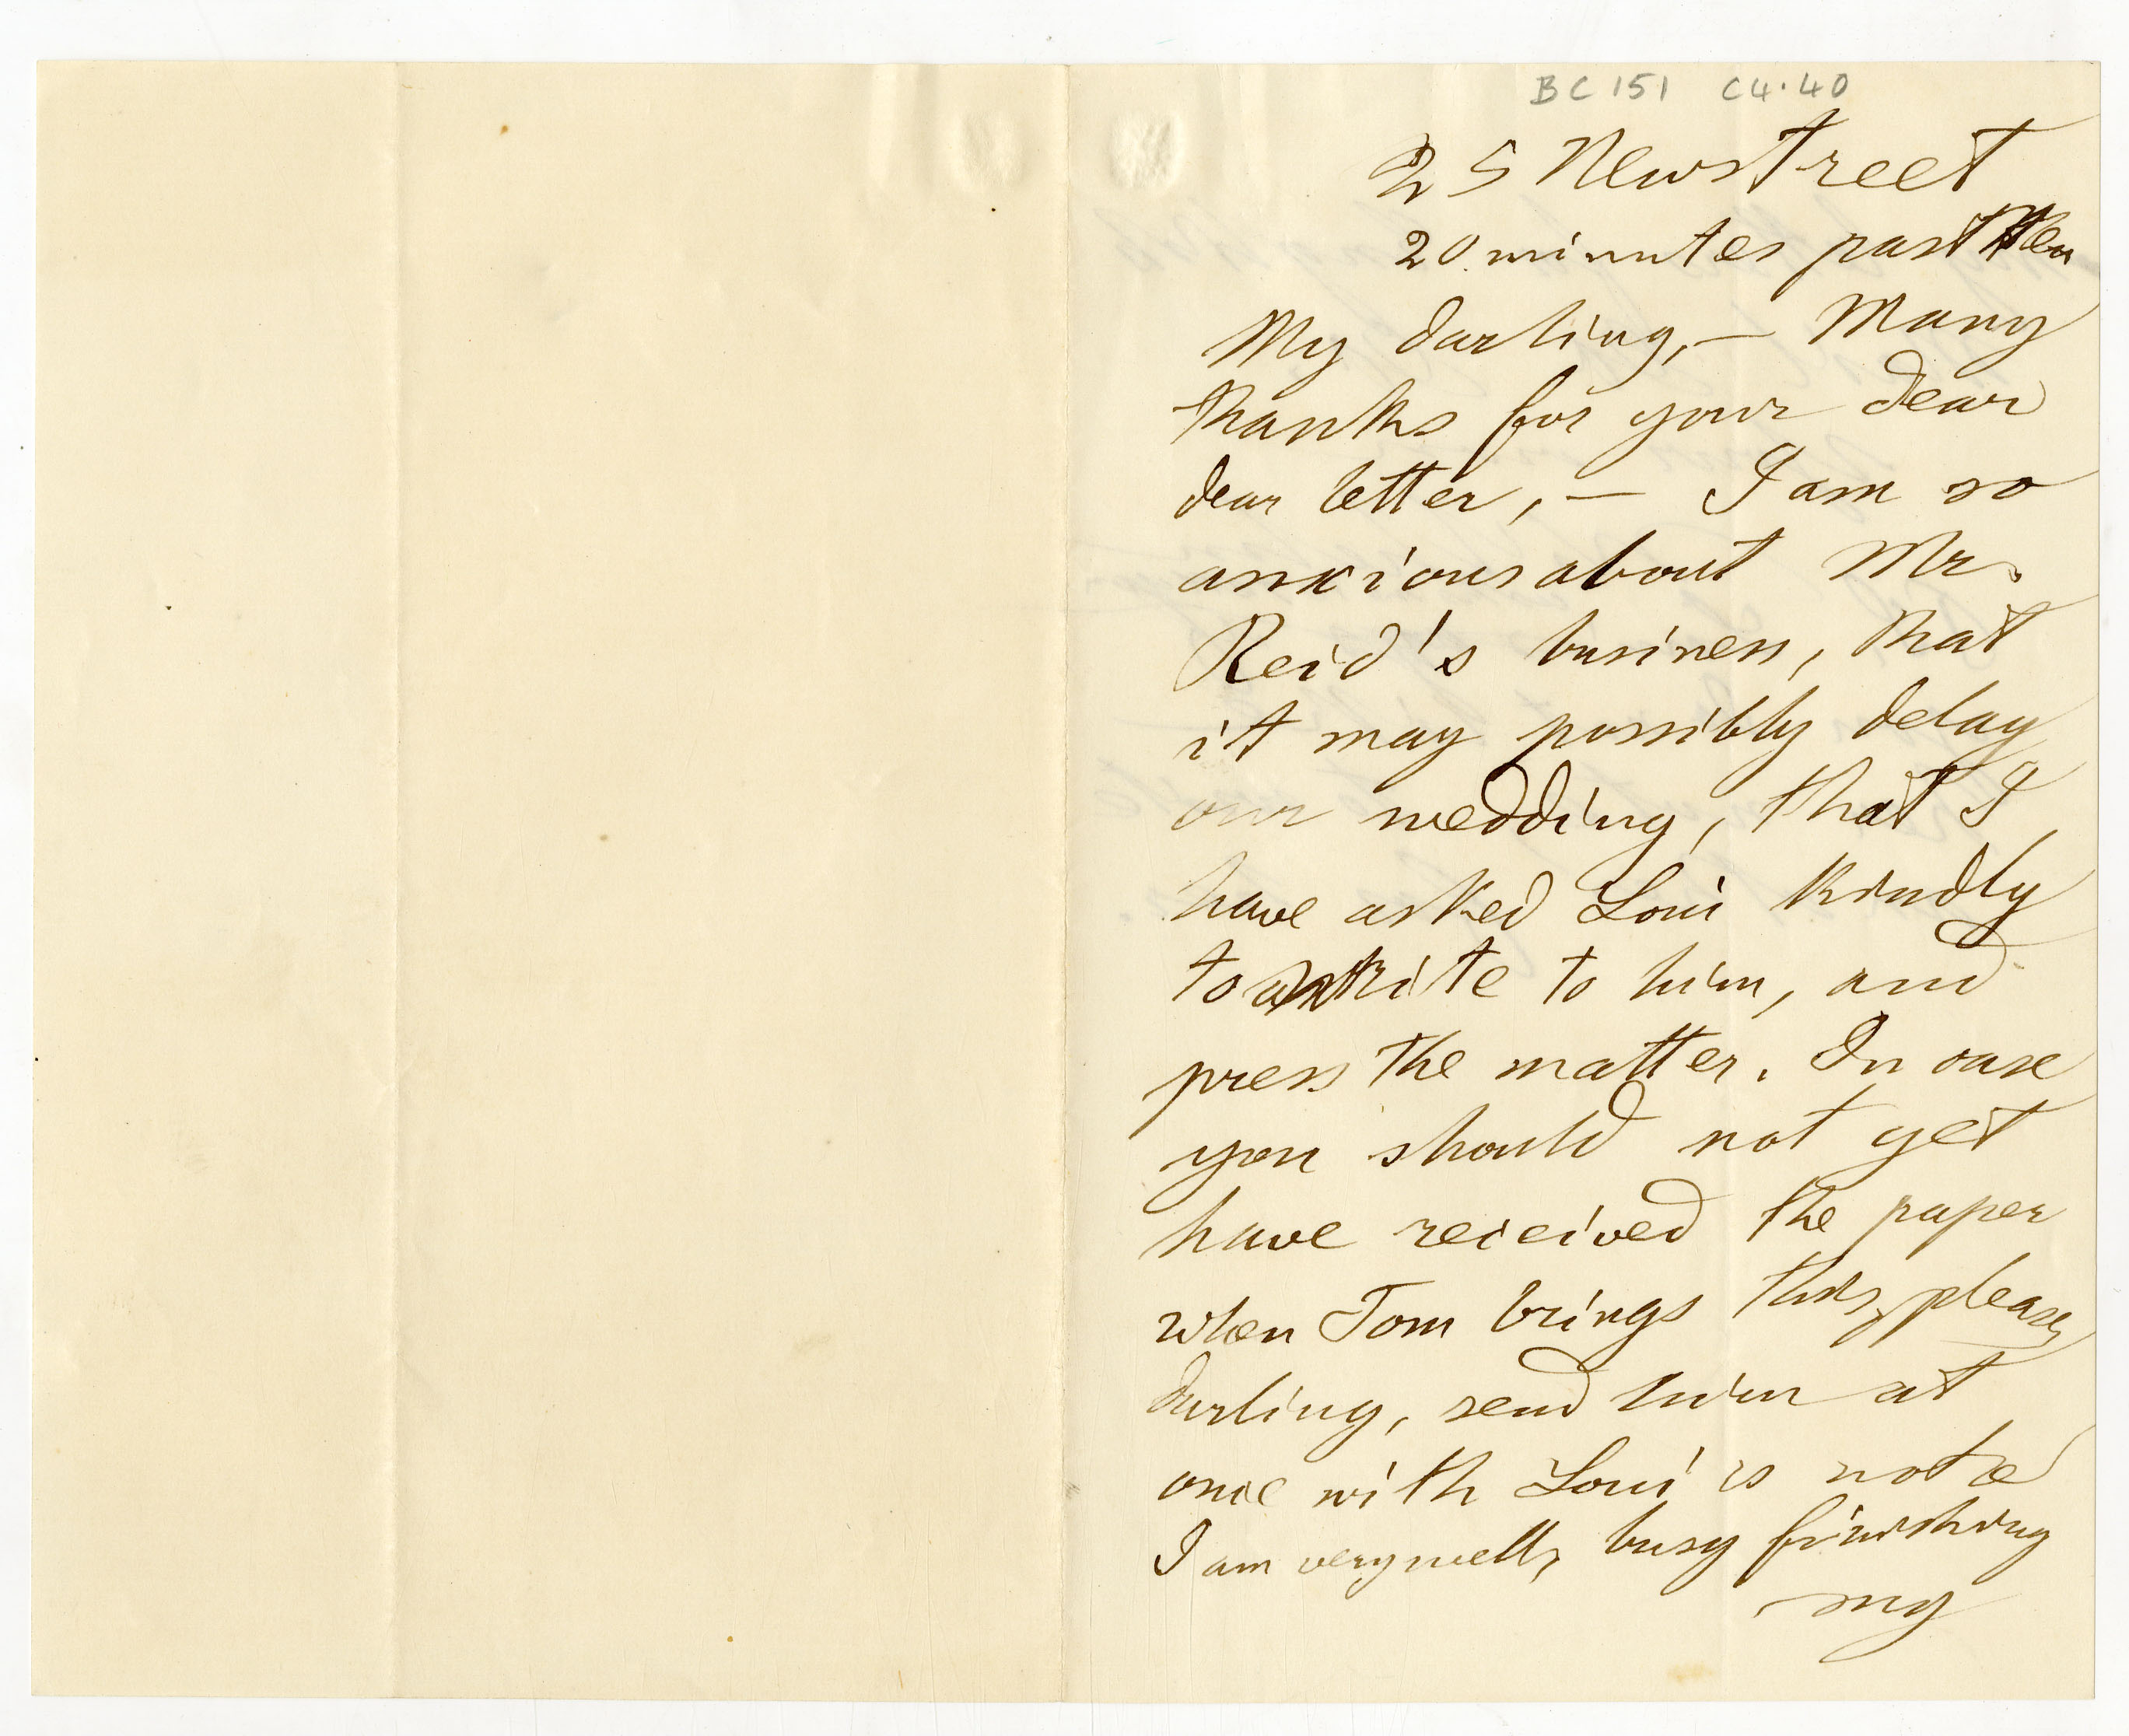 BC 151 C4.40
25 Newstreet
20 minutes past ten
My darling, — Many
thanks for your dear
dear letter, — I am so
anxious about Mr.
Reid's business, that
it may possibly delay
our wedding, that I
have asked Loui kindly
to write to him, and
press the matter. In case
you should not yet
have received the paper
when Tom brings this, please,
darling, send him at
once with Loui's note
I am very well, busy finishing
my